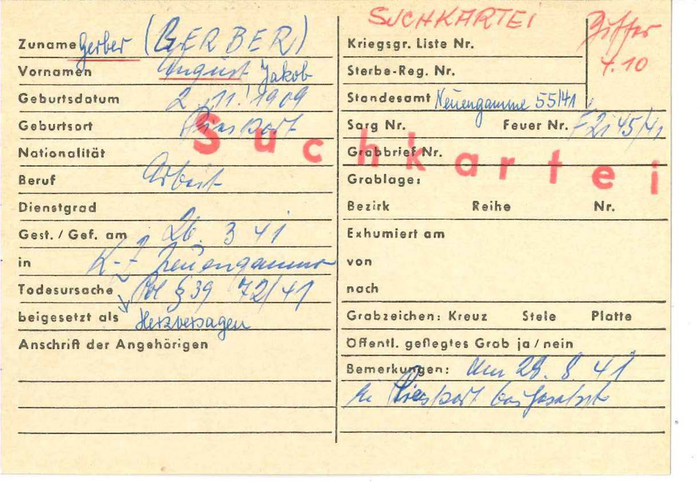 SUCHKARTEI
Ziffer
4.10
Zuname Gerber (GERBER)
Vornamen August Jakob
Geburtsdatum 2.11.1909
Geburtsort Piesport
Nationalität
Beruf Arbeit
Dienstgrad
Gest. / Gef. am 26. 3 41
in K-Z Neuengamme
Todesursache Pol § 39 72/41
beigesetzt als Herzversagen
Anschrift der Angehörigen
Suchkartei
Kriegsgr. Liste Nr.
Sterbe-Reg. Nr.
Standesamt Neuengamme 55/41
Sarg Nr. Feuer Nr.
Grabbrief Nr.
Grablage:
Bezirk Reihe Nr.
Exhumiert am
von
nach
Grabzeichen: Kreuz Stele Platte
Öffentl. gepflegtes Grab ja / nein
Bemerkungen: Am 29. 8 41
in Piesport beigesetzt